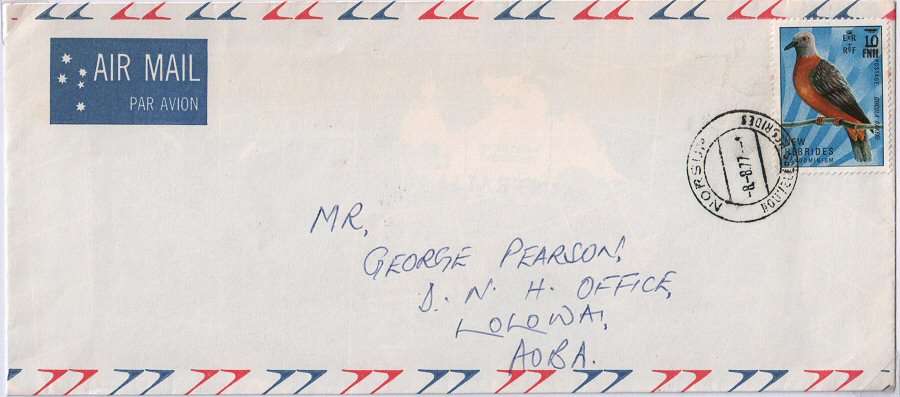 AIR MAIL
PAR AVION
E R
R F
10
FNH
POSTAGE
NEW
HEBRIDES
CONDOMINIUM
NORSUP
-8.-8.77
NOUVELLES HEBRIDES
MR,
GEORGE PEARSON,
D. N. H. OFFICE,
LOLOWAI,
AOBA.